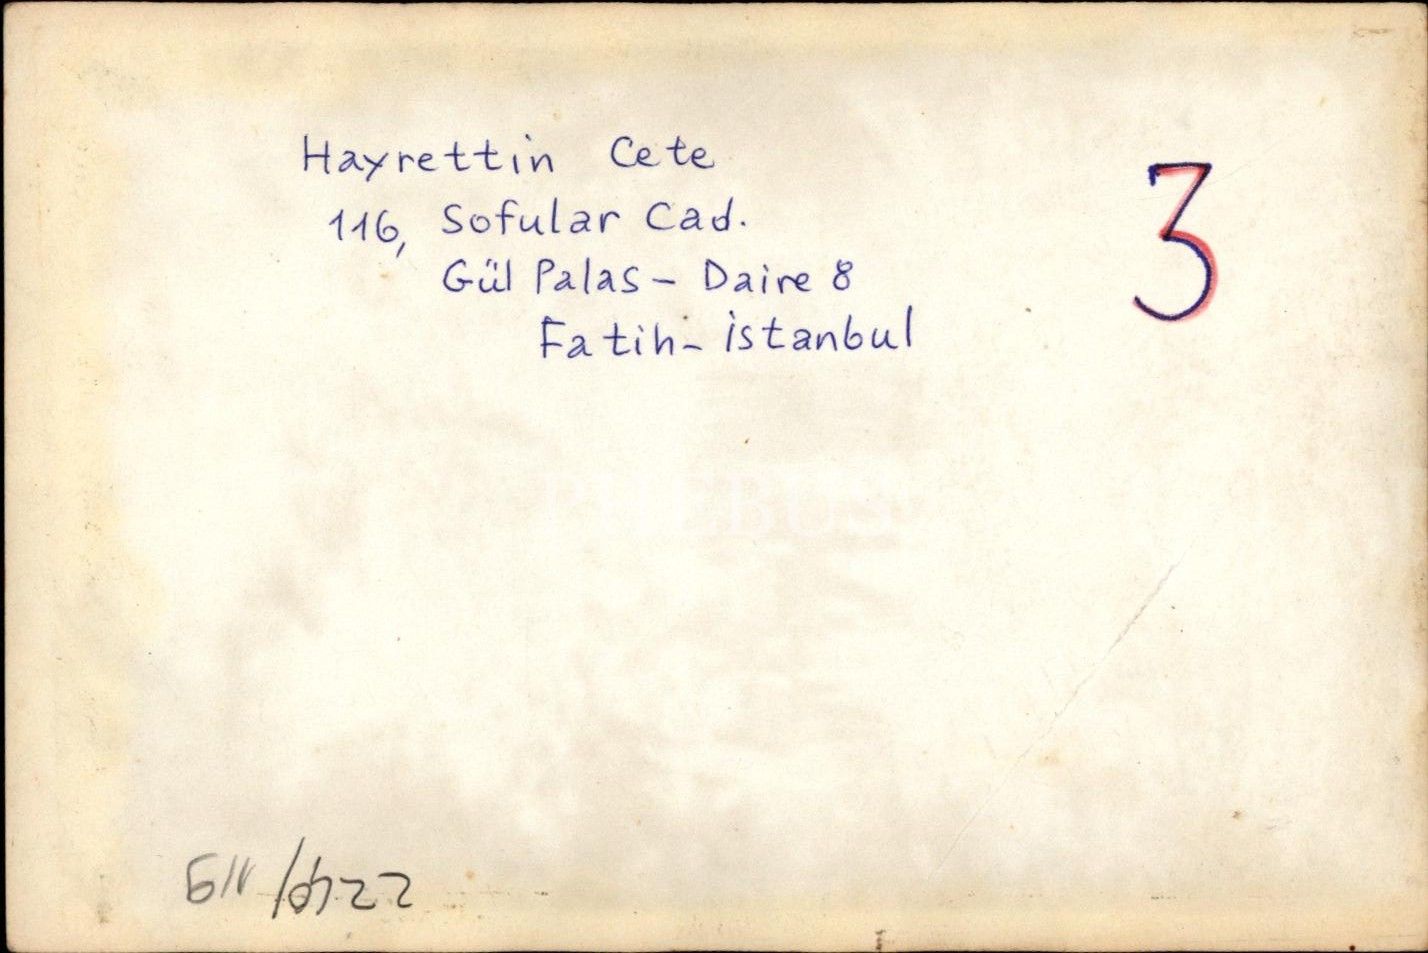 Hayrettin Cete
3
116, Sofular Cad.
Gül Palas - Daire 8
Fatih - İstanbul
PHEBUS